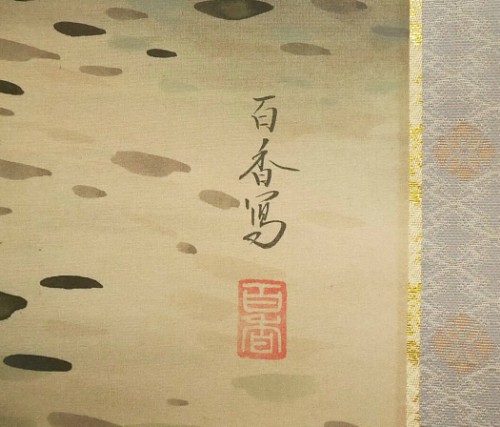 百香写
百香